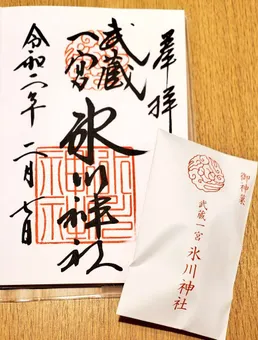 奉拝
武蔵
一宮
氷川神社
令和二年
二月
御神菓
武蔵一宮
氷川神社